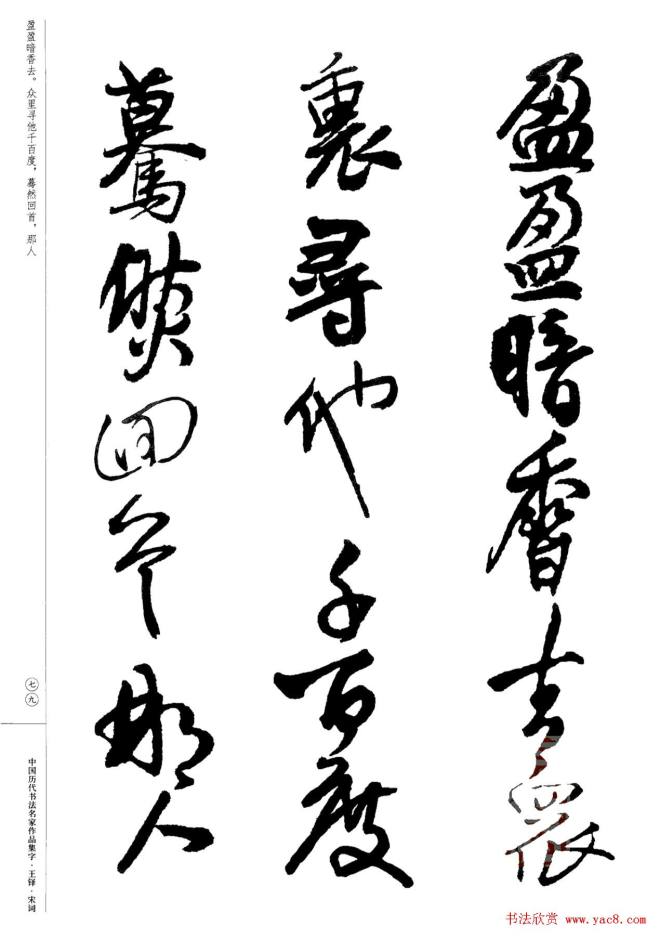 盈盈暗香去眾
裏尋他千百度
驀然回首那人
盈盈暗香去。众里寻他千百度，蓦然回首，那人
七九
中国历代书法名家作品集字·王铎·宋词
书法欣赏 www.yac8.com